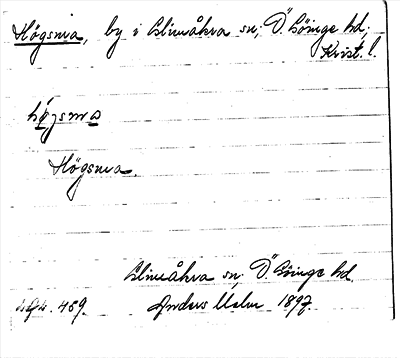 Högsma, by i Glimåkra sn, Ö. Göinge hd,
Krist. l.
högsma
Högsma.
Glimåkra sn, Ö. Göinge hd.
459. Anders Malm 1897.